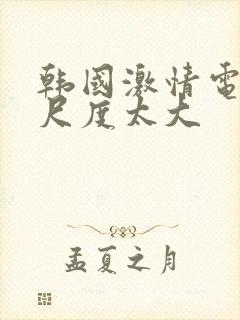 韩國激情電
尺度太大
孟夏之月